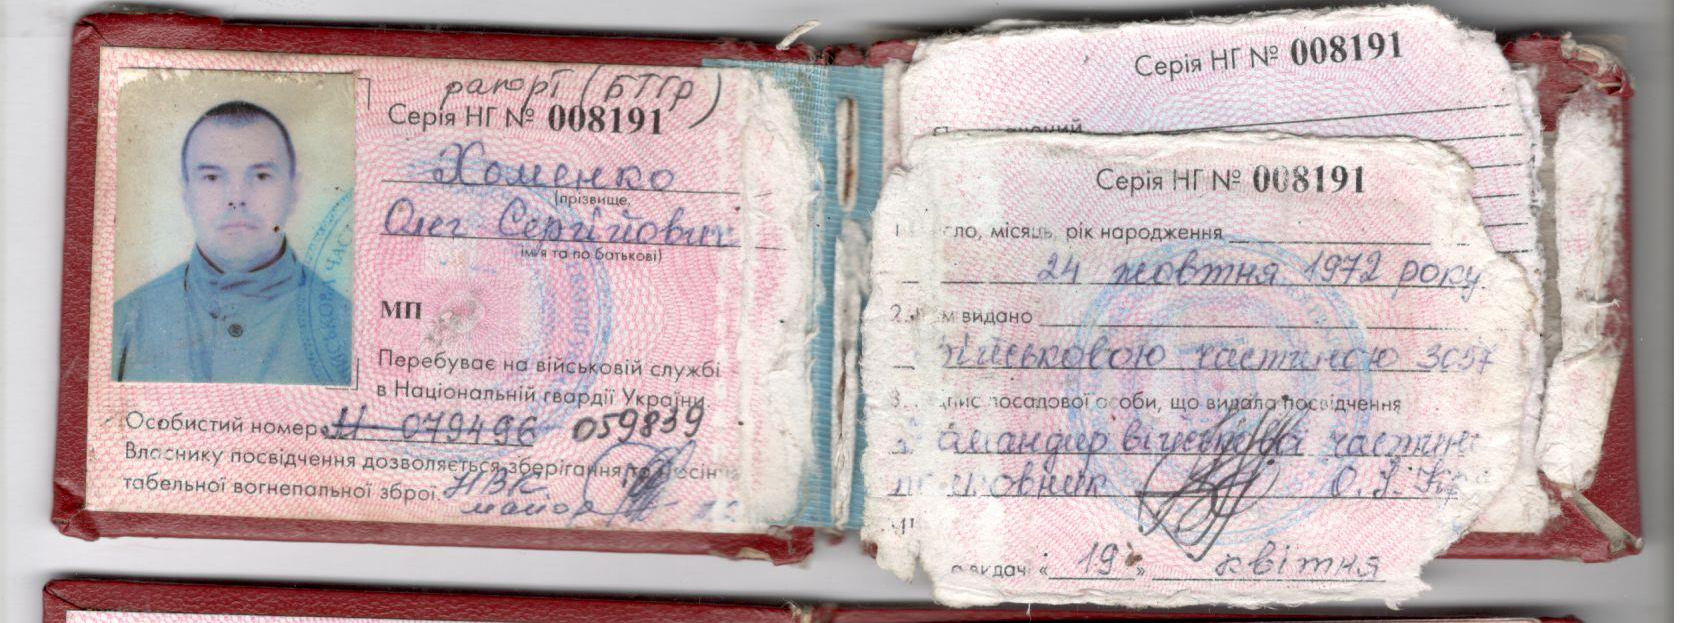 рапорт (БТГр)
Серія НГ № 008191
Хоменко
(прізвище,
Олег Сергійович
ім'я та по батькові)
МП
Перебуває на військовій службі
в Національній гвардії України
Особистий номер Н-079496 059839
Власнику посвідчення дозволяється зберігання та носіння
табельної вогнепальної зброї.
НВК
майор
Серія НГ № 008191
Серія НГ № 008191
ло, місяць, рік народження
24 жовтня 1972 року
2. м видано
військовою частиною 3057
3. пис посадової особи, що видала посвідчення
командир військової частини
О.
видач « 19 » квітня